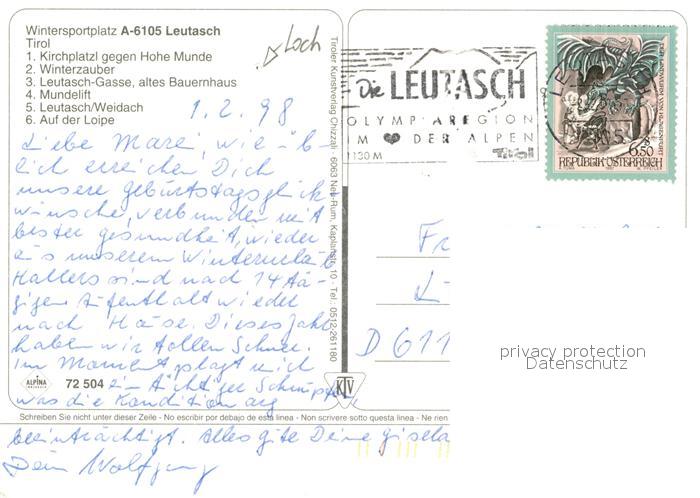 Wintersportplatz A-6105 Leutasch
Tirol
1. Kirchplatzl gegen Hohe Munde
2. Winterzauber
3. Leutasch-Gasse, altes Bauernhaus
4. Mundelift
5. Leutasch/Weidach
6. Auf der Loipe
Loch
1.2.98
Liebe Marei, wie üb-
lich erreichen Dich
unsere Geburtstagsglück-
wünsche, verbunden mit
bester Gesundheit, wieder
aus unserem Winterurlaub
sind nach 14 tä-
gigem Aufenthalt wieder
nach Hause. Dieses Jahr
haben wir tollen Schnee.
Im Moment plagt mich
ein tüchtiger Schnupfen,
was die Kondition arg
beeinträchtigt. Alles Gute Deine Gisela
Dein Wolfgang
ALPINA
72 504
KTV
Schreiben Sie nicht unter dieser Zeile - No escribir por debajo de esta linea - Non scrivere sotto questa linea - Ne rien
Tiroler Kunstverlag Chizzali · 6063 Neu-Rum, Kaplanstr. 10 - Tel.: 0512-261180
Die LEUTASCH
OLYMPIAREGION
IM DER ALPEN
1130 M
Tirol
DER LINDWURM VON KLAGENFURT
6.50
REPUBLIK ÖSTERREICH
1997
Fr
D 611
privacy protection
Datenschutz